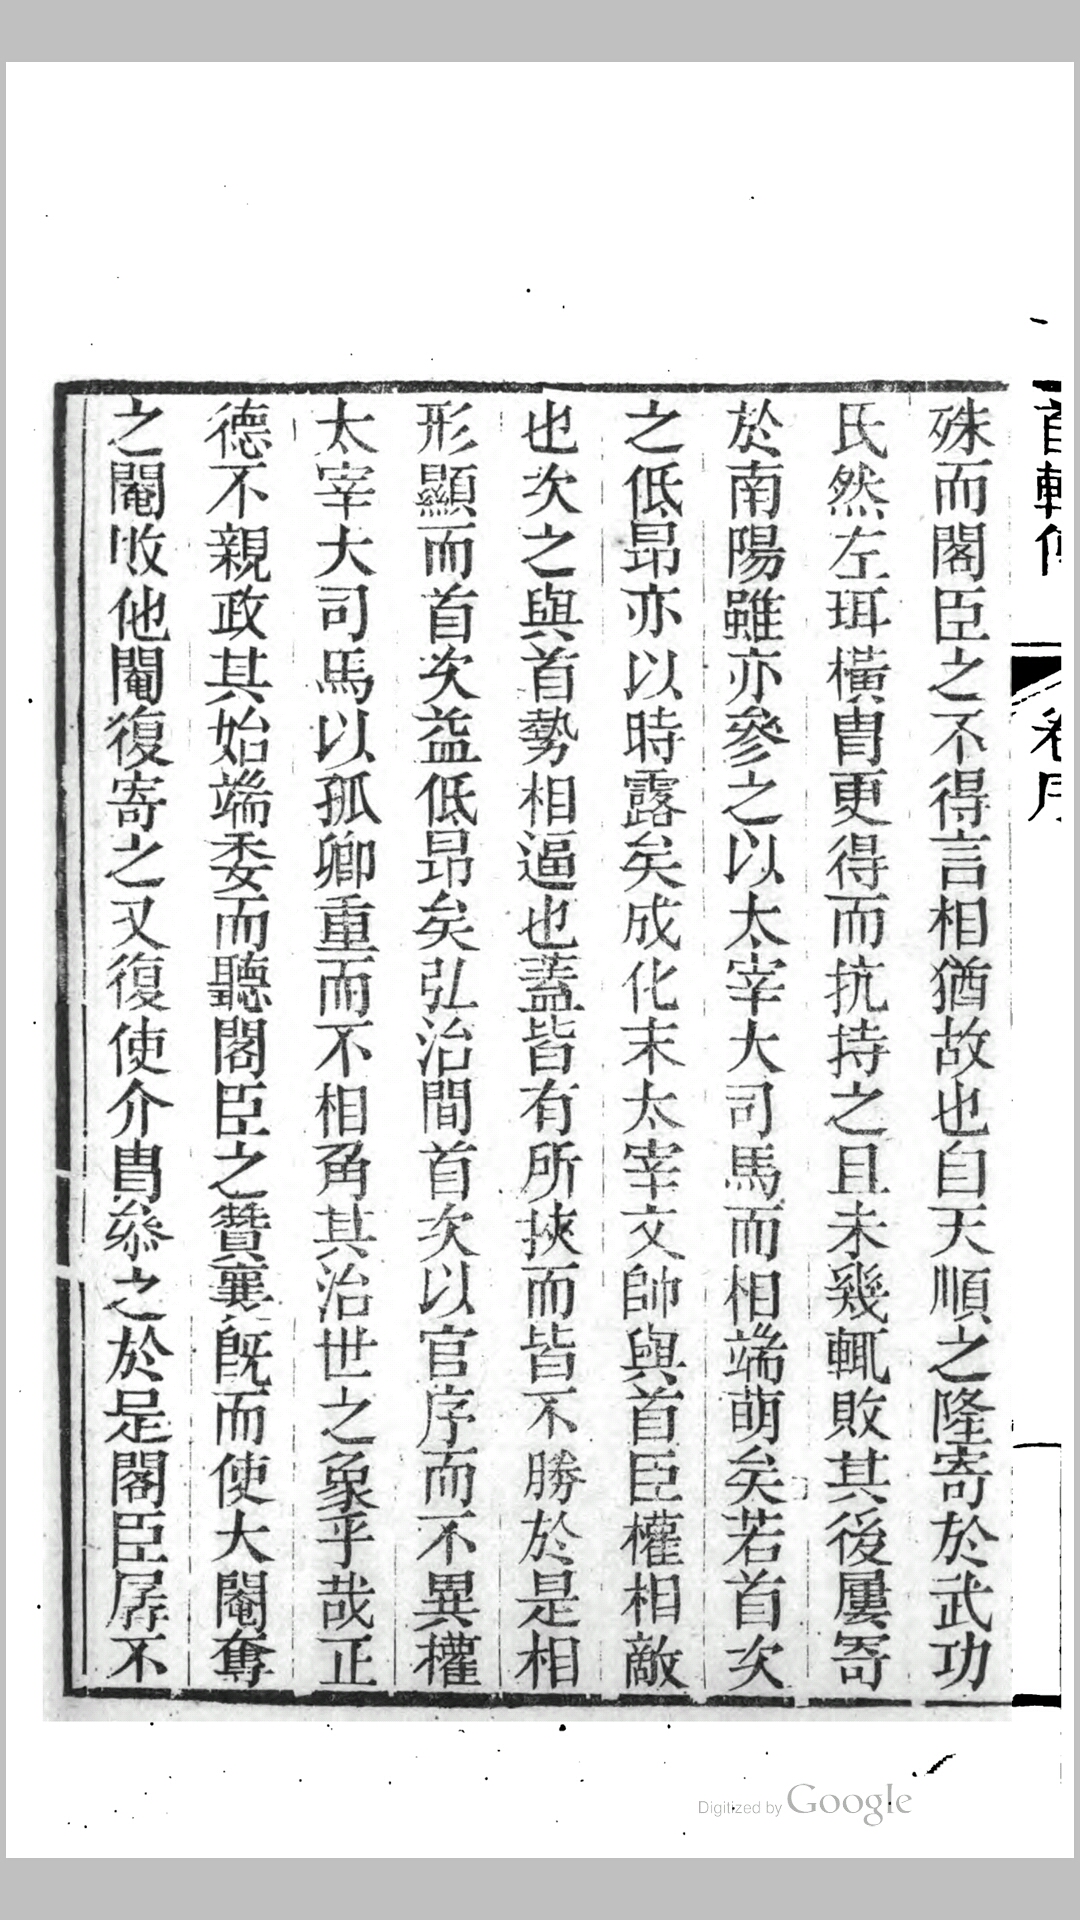 殊而閣臣之不得言相猶故也自天順之隆寄於武功
氏然左珥橫冑更得而抗持之且未幾輒敗其後屢寄
於南陽雖亦參之以太宰大司馬而相端萌矣若首次
之低昻亦以時露矣成化末太宰文帥與首臣權相敵
也次之與首勢相逼也蓋皆有所挾而皆不勝於是相
形顯而首次益低昻矣弘治間首次以官序而不異權
太宰大司馬以孤卿重而不相角其治世之象乎哉正
德不親政其始端委而聽閣臣之贊襄旣而使大閹奪
之閹敗他閹復寄之又復使介冑叅之於是閣臣孱不
首輔傳
卷序
一
Digitized by Google